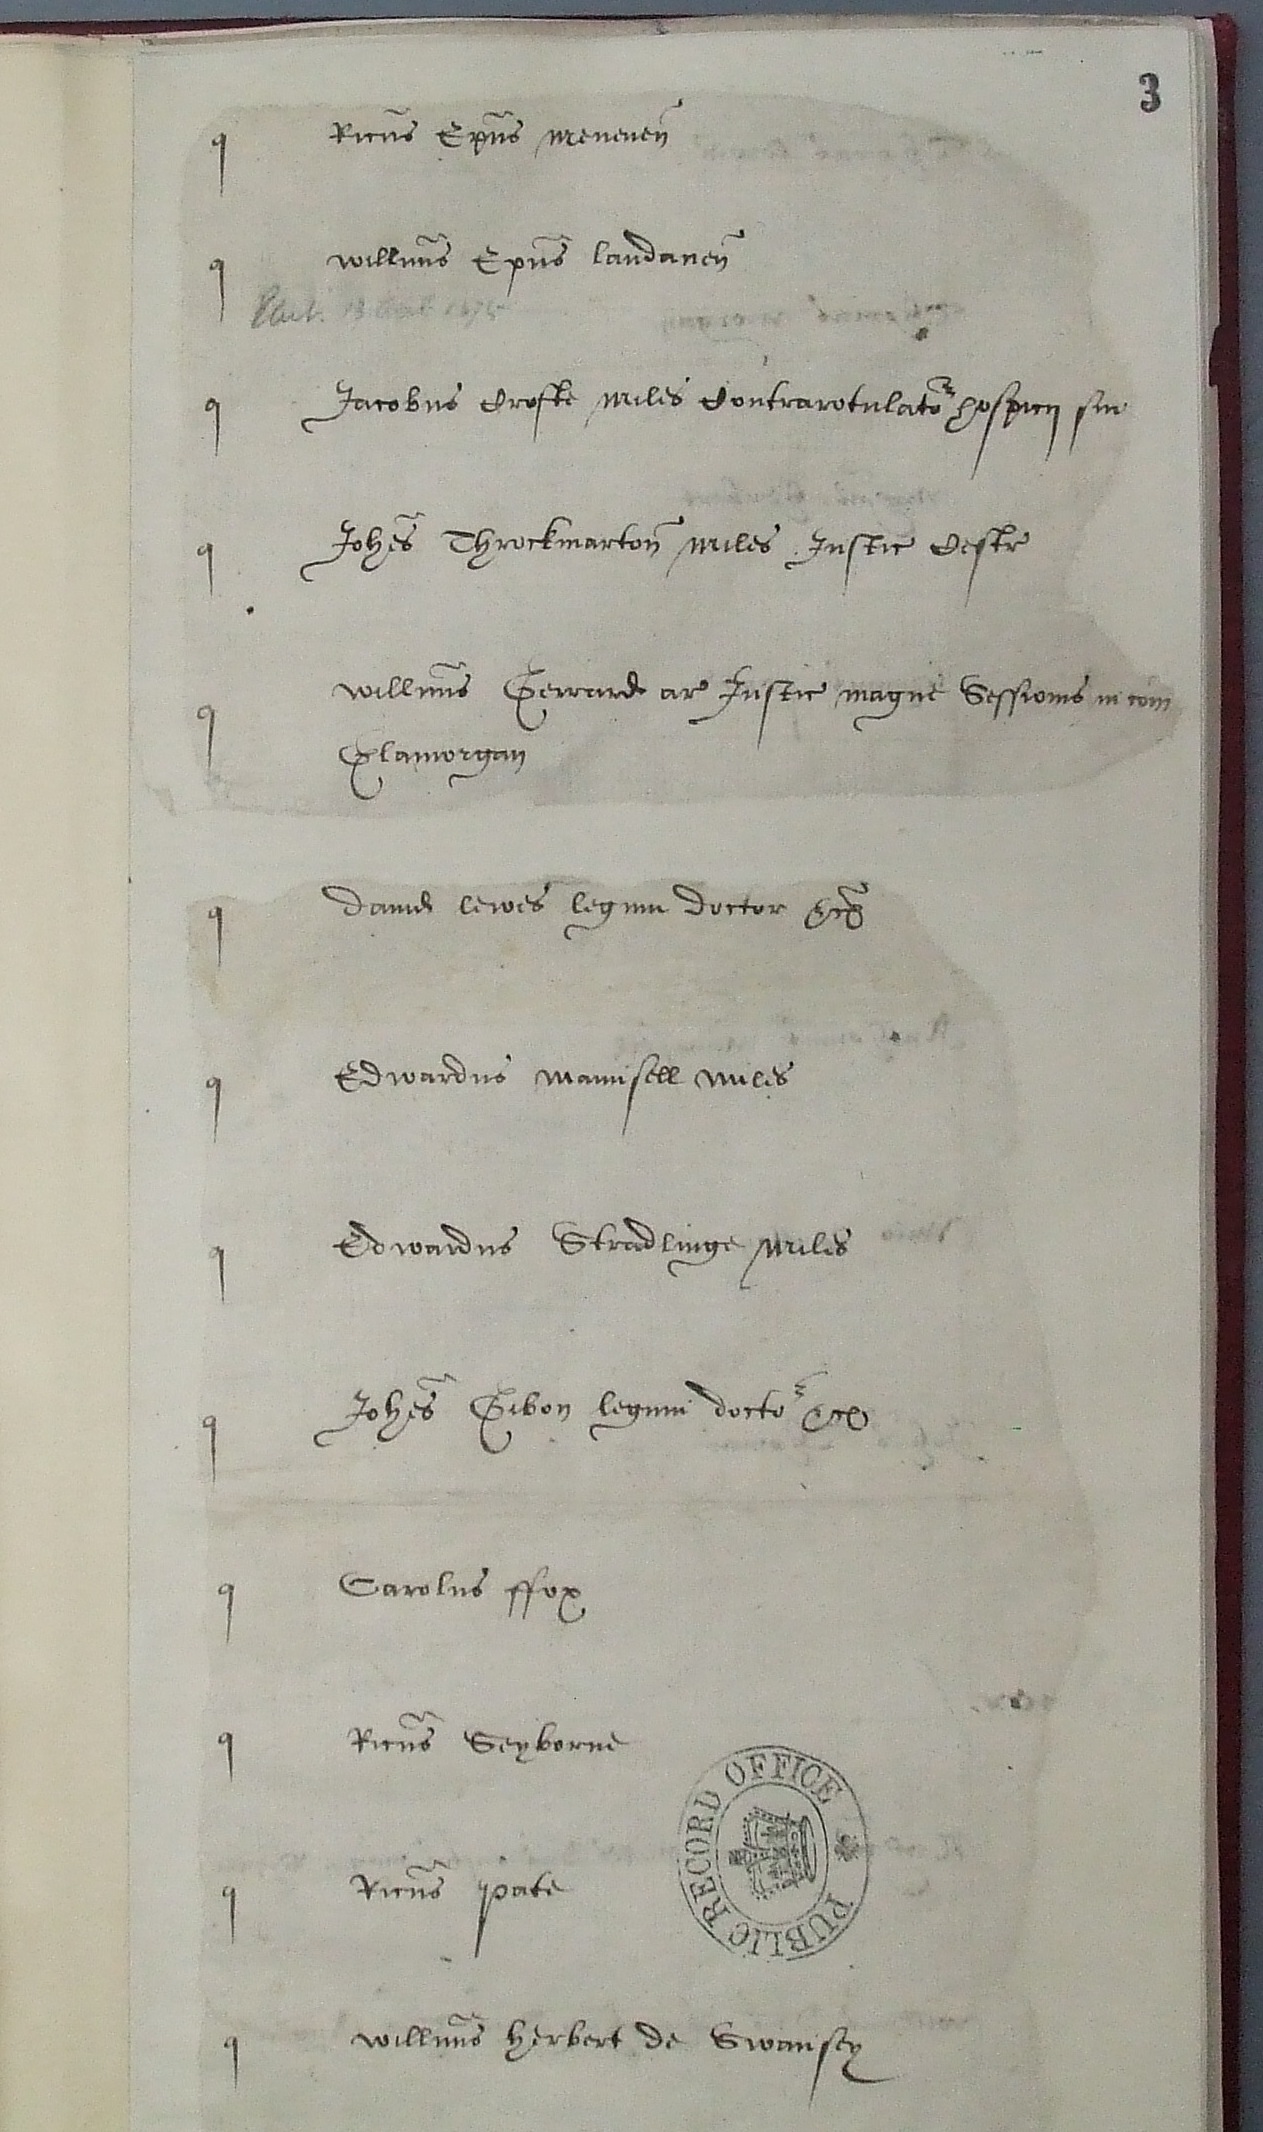 3
q Ricũs Epũs meneueñ
q Willm̃us Epũs landaueñ
q Jacobus Crofte miles Contrarotulator hospicij sui
q Joħes Throckmartoñ miles Justic Cestr
q Willm̃us Gerrard ar Justic magne Sessionis in com
Glamorgan
q Dauid lewes legum doctor &c
q Edwardus mannsell miles
q Edwardus Stradlinge miles
q Joħes Gibon legum doctor &c
q Carolus ffox
q Ricũs Seyborne
q Ricũs pate
PUBLIC RECORD OFFICE
q Willm̃us herbert de Swansey